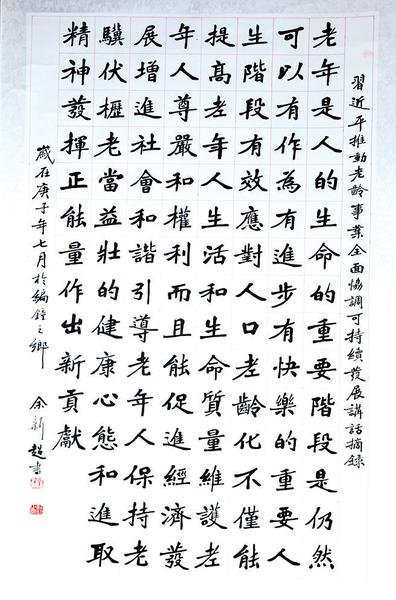 習近平推動老齡事業全面協調可持續發展講話摘錄
老年是人的生命的重要階段是仍然
可以有作為有進步有快樂的重要人
生階段有效應對人口老齡化不僅能
提高老年人生活和生命質量維護老
年人尊嚴和權利而且能促進經濟發
展增進社會和諧引導老年人保持老
驥伏櫪老當益壯的健康心態和進取
精神發揮正能量作出新貢獻
歲在庚子年七月於編鐘之鄉 余新超書